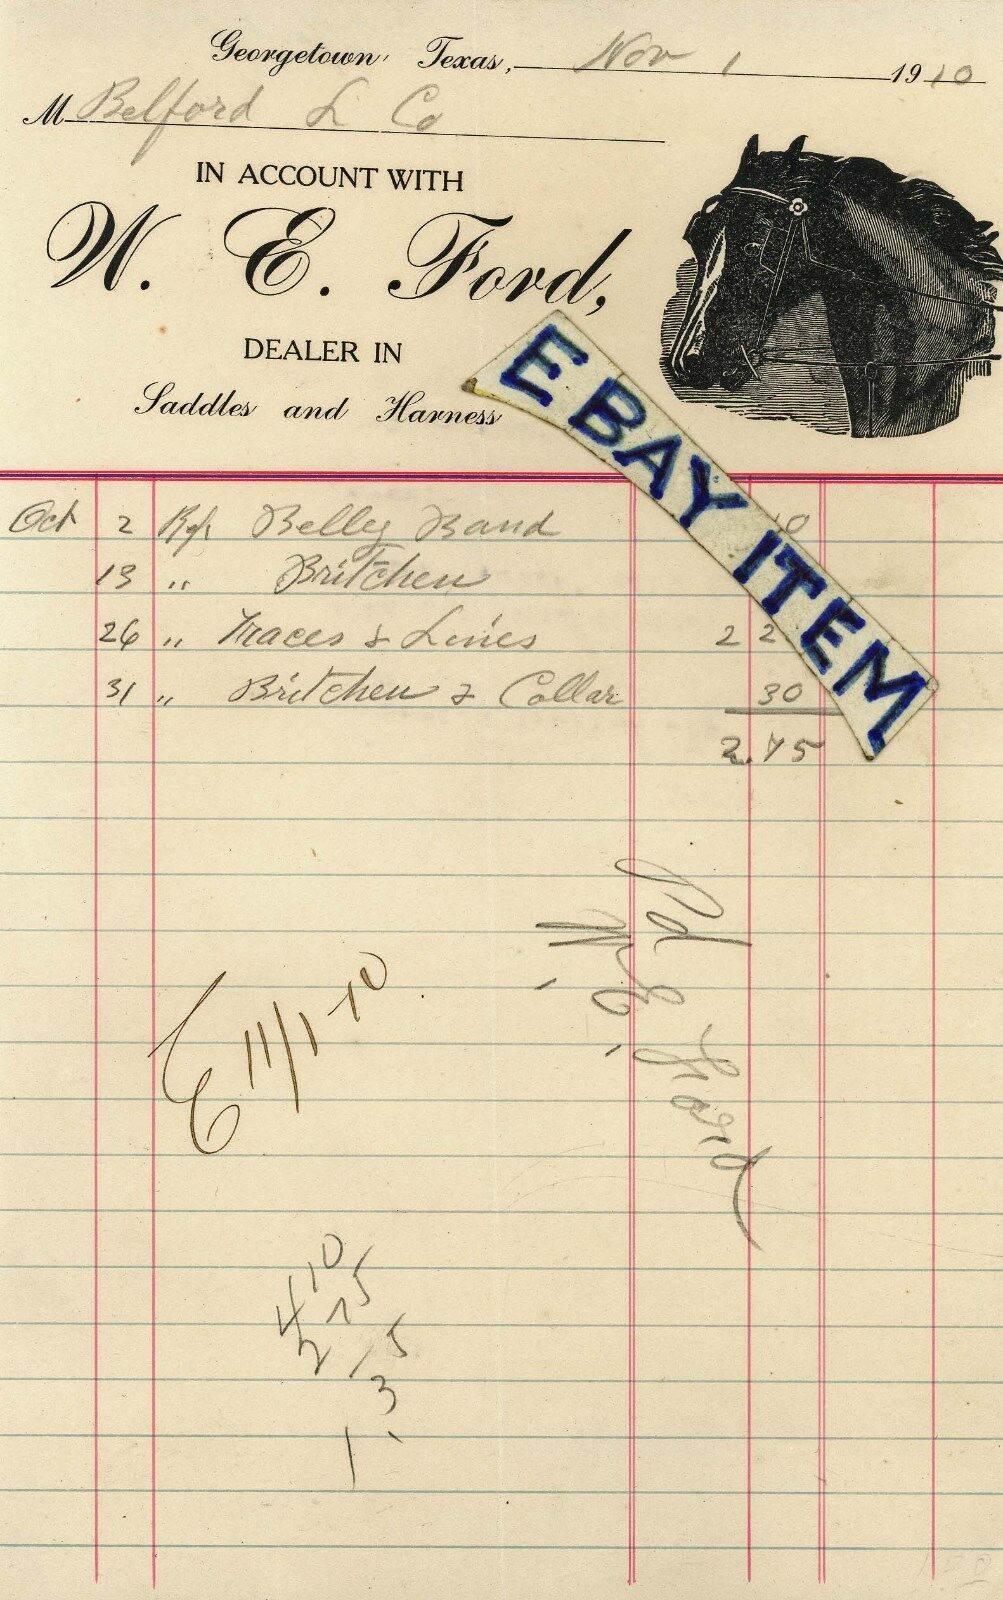 Georgetown, Texas, Nov 1 1910
M Belford L Co
IN ACCOUNT WITH
W. E. Ford,
DEALER IN
Saddles and Harness
EBAY ITEM
Oct 2 Rep Belley Band
13 " Britchen
26 " Traces & Lines 2 2
31 " Britchen & Collar 30
2.75
Pd
W. E. Ford
E 11/1-10
4 10
2 75
1 35